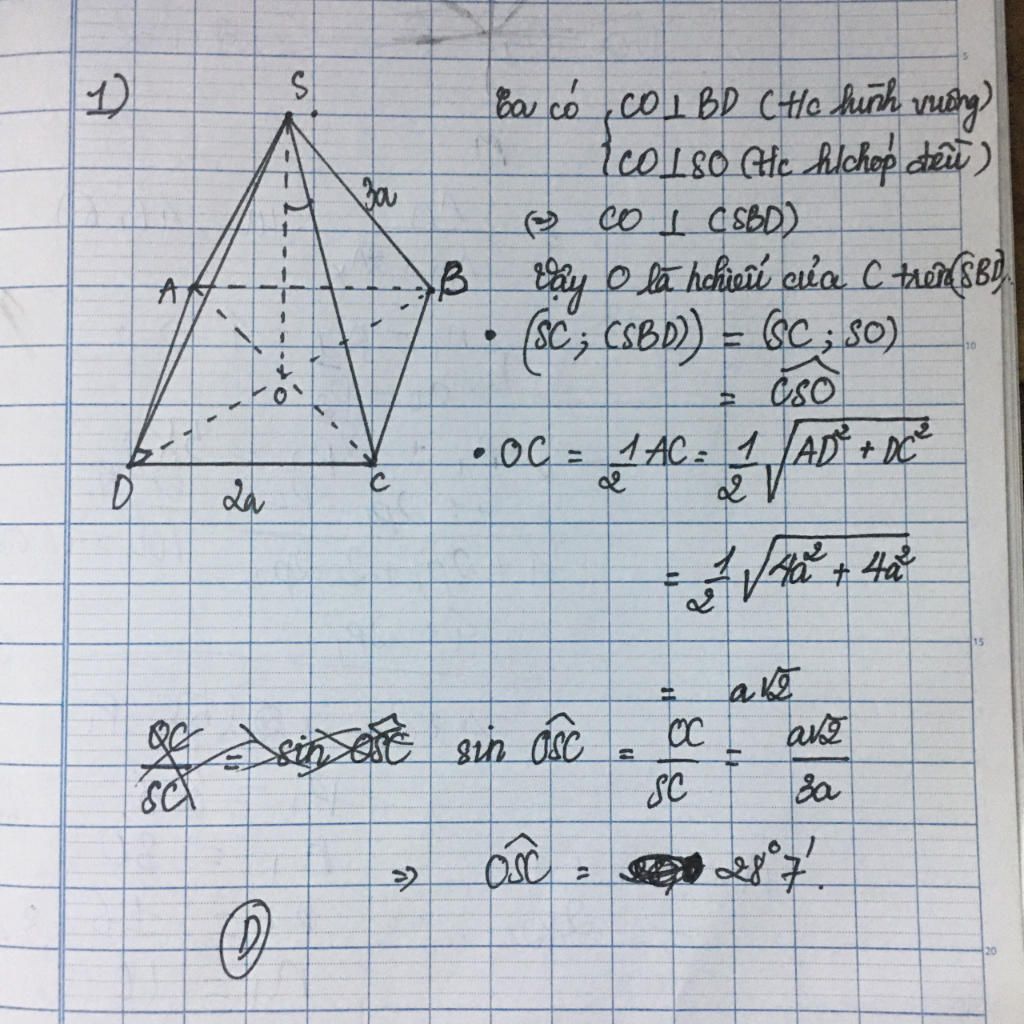 1)
S
3a
A
B
O
D
C
2a
Ta có { CO ⊥ BD (t/c hình vuông)
{ CO ⊥ SO (t/c h/chóp đều)
(=> CO ⊥ (SBD)
Vậy O là hchiếu của C trên (SBD).
• (SC; (SBD)) = (SC; SO)
= \widehat{CSO}
• OC = 1/2 AC = 1/2 √(AD² + DC²)
= 1/2 √(4a² + 4a²)
= a√2
OC/SC = sin \widehat{OSC} sin \widehat{OSC} = OC/SC = a√2/3a
=> \widehat{OSC} = 28°7'.
D